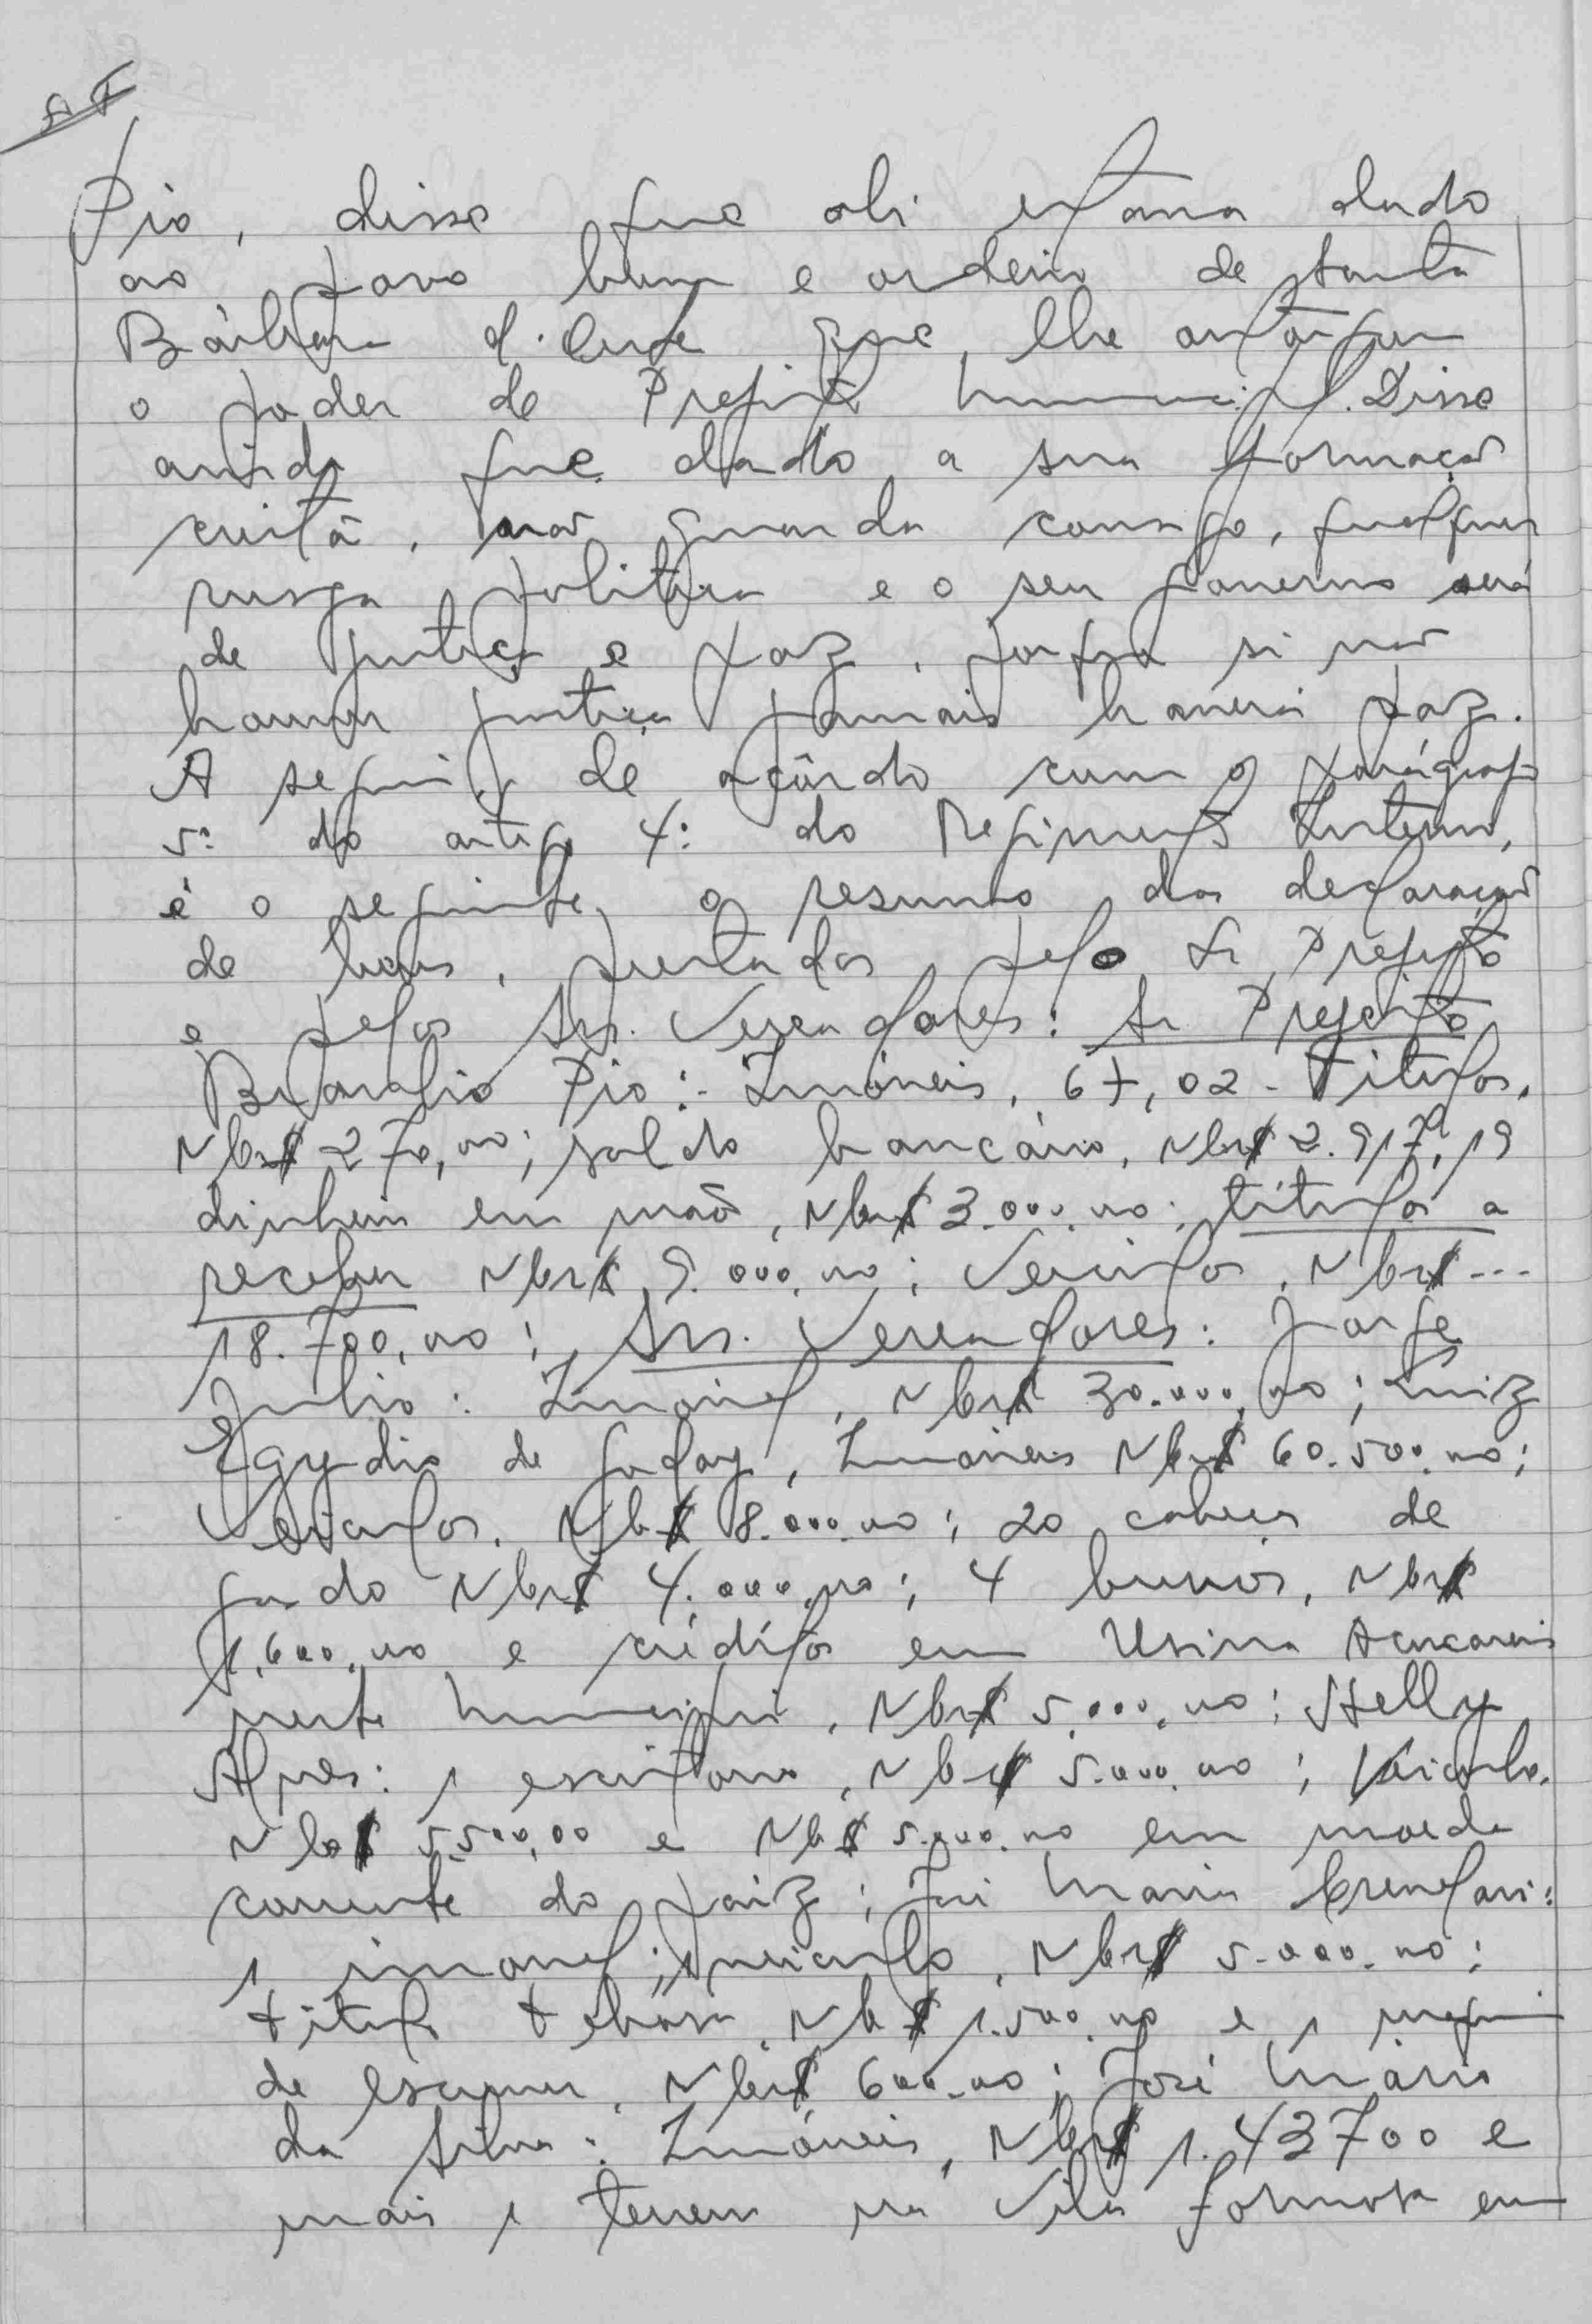 Pio, disse que ali estava dado
ao povo bom e ordeiro de Santa
Bárbara d'Oeste que, lhe
o poder de Prefeito Municipal. Disse
ainda que dado a sua formação
cristã, não guarda consigo, qualquer
rusga política e o seu governo será
de justiça e paz, porque si não
houver justiça jamais haverá paz.
A seguir, de acôrdo com o parágrafo
5º do artigo 4º do Regimento Interno,
é o seguinte o resumo das declarações
de bens, prestadas pelo Sr Prefeito
e pelos Srs. Vereadores: Sr Prefeito
Braulio Pio:- Imóveis, 67,02 - Titulos,
NCr$ 270,00; saldo bancário, NCr$ 2.917,19
dinheiro em mão, NCr$ 3.000,00; títulos a
receber NCr$ 9.000,00; Veiculos, NCr$ ---
18.700,00; Srs. Vereadores: Jorge
Julio: Imóvel, NCr$ 30.000,00; Luiz
Egydio de Godoy, Imóveis NCr$ 60.500,00;
Veiculos, NCr$ 8.000,00; 20 cabeças de
gado NCr$ 4.000,00; 4 burros, NCr$
1.600,00 e crédito em Usina Açucareira
neste Municipio, NCr$ 5.000,00; Stelly
Alves: 1 escritorio, NCr$ 5.000,00; Veiculo,
NCr$ 5.500,00 e NCr$ 5.000,00 em moeda
corrente do paiz; José Maria
1 imovel; 1 veiculo, NCr$ 5.000,00;
titulo NCr$ 1.500,00 e 1 maquina
de escrever, NCr$ 600,00; José Mário
da Silva: Imóveis, NCr$ 1.43700 e
mais 1 terreno na Vila Formosa em